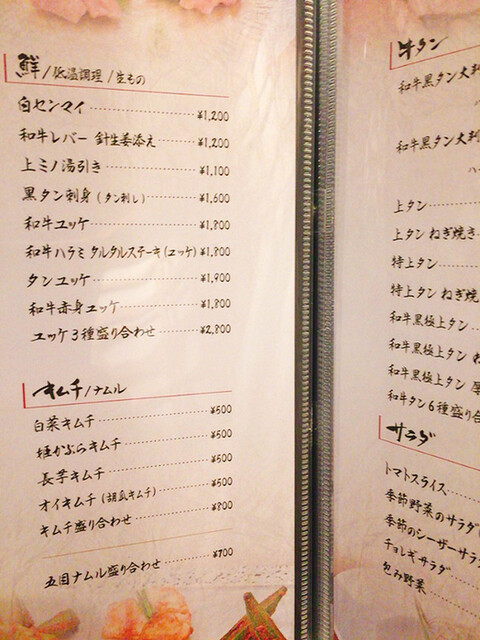 鮮/低温調理/生もの
白センマイ ¥1,200
和牛レバー 針生姜添え ¥1,200
上ミノ湯引き ¥1,100
黒タン刺身(タン刺し) ¥1,600
和牛ユッケ ¥1,800
和牛ハラミ タルタルステーキ(ユッケ) ¥1,800
タンユッケ ¥1,900
和牛赤身ユッケ ¥1,800
ユッケ3種盛り合わせ ¥2,800
キムチ/ナムル
白菜キムチ ¥500
姫かぶらキムチ ¥500
長芋キムチ ¥500
オイキムチ(胡瓜キムチ) ¥500
キムチ盛り合わせ ¥800
五目ナムル盛り合わせ ¥700
牛タン
和牛黒タン大判
和牛黒タン大判
上タン
上タン ねぎ焼き
特上タン
特上タン ねぎ焼
和牛黒極上タン
和牛黒極上タン ね
和牛黒極上タン 厚
和牛タン6種盛り合
サラダ
トマトスライス
季節野菜のサラダ(
季節のシーザーサラ
チョレギサラダ
包み野菜